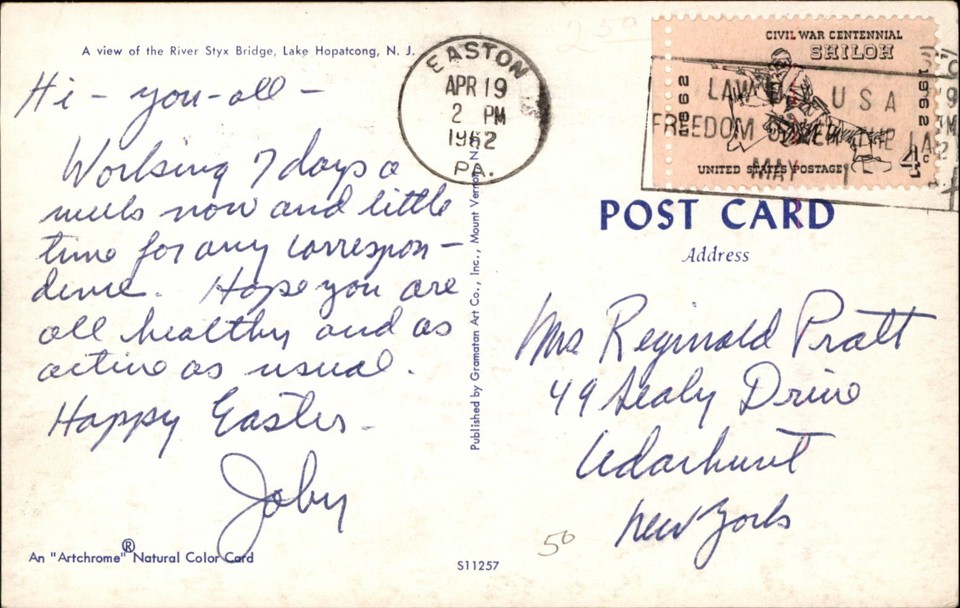 A view of the River Styx Bridge, Lake Hopatcong, N. J.
Hi - you-all -
Working 7 days a
week now and little
time for any correspon-
dence. Hope you are
all healthy and as
active as usual.
Happy Easter.
Joby
An "Artchrome"® Natural Color Card
S11257
Published by Gramatan Art Co., Inc., Mount Vernon, N.
EASTON
APR 19
2 PM
1962
PA.
250
CIVIL WAR CENTENNIAL
SHILOH
1862
1962
UNITED STATES POSTAGE
4c
LAW DAY USA
FREEDOM UNDER THE LAW
MAY 1
POST CARD
Address
Mrs Reginald Pratt
49 Sealy Drive
Cedarhurst
New York
50